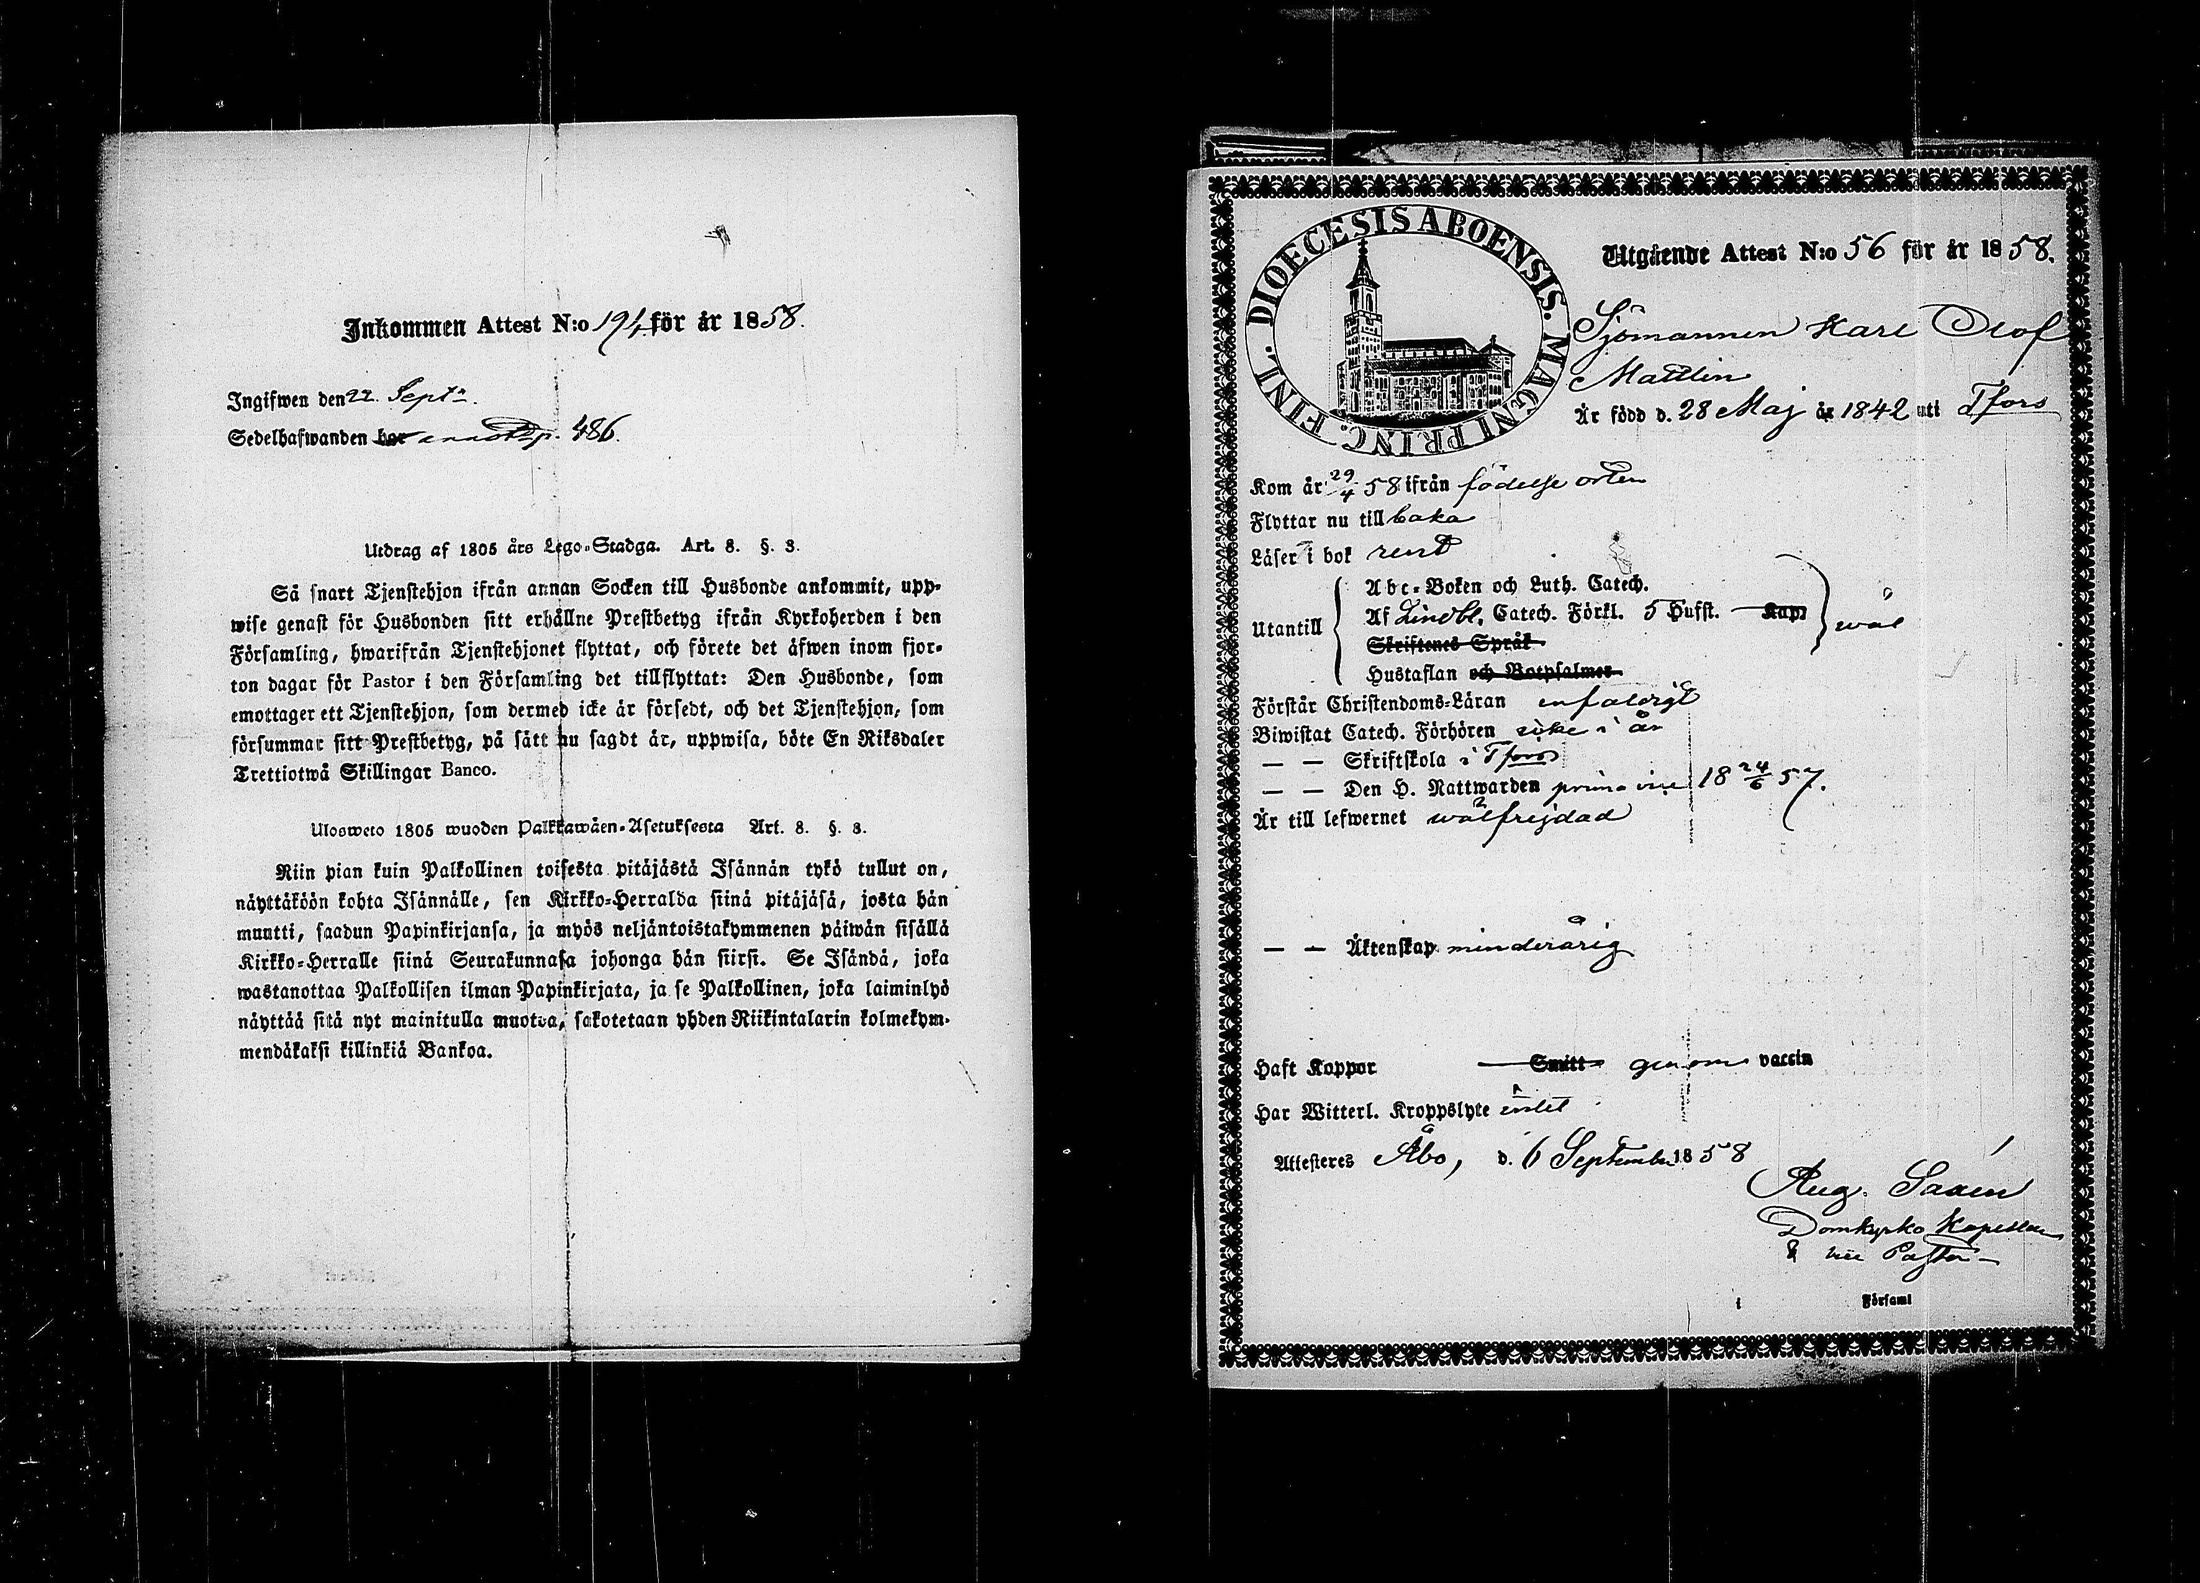 Inkommen Attest N:o 194 för år 1858.
Ingifwen den 22 Sept.
Sedelhafwanden har annot. p. 486.
Utdrag af 1805 års Lego-Stadga. Art. 8. §. 3.
Så snart Tjenstehjon ifrån annan Socken till Husbonde ankommit, upp-
wise genast för Husbonden sitt erhållne Prestbetyg ifrån Kyrkoherden i den
Församling, hwarifrån Tjenstehjonet flyttat, och förete det äfwen inom fjor-
ton dagar för Pastor i den Församling det tillflyttat: Den Husbonde, som
emottager ett Tjenstehjon, som dermed icke är försedt, och det Tjenstehjon, som
försummar sitt Prestbetyg, på sätt nu sagdt är, uppwisa, böte En Riksdaler
Trettiotwå Skillingar Banco.
Ulosweto 1805 wuoden Palkkawäen-Asetuksesta Art. 8. §. 3.
Niin pian kuin Palkollinen toisesta pitäjästä Isännän tykö tullut on,
näyttäköön kohta Isännälle, sen Kirkko-Herralda siinä pitäjäsä, josta hän
muutti, saadun Papinkirjansa, ja myös neljäntoistakymmenen päiwän sisällä
Kirkko-Herralle siinä Seurakunnasa johonga hän siirsi. Se Isändä, joka
wastanottaa Palkollisen ilman Papinkirjata, ja se Palkollinen, joka laiminlyö
näyttää sitä nyt mainitulla muotoa, sakotetaan yhden Riikintalarin kolmekym-
mendäkaksi killinkiä Bankoa.
DIOECESIS ABOENSIS. MAGNI PRINC. FINL.
Utgående Attest N:o 56 för år 1858.
Sjömannen Karl Olof
Mattlin
Är född d. 28 Maj år 1842 uti Tfors
Kom år 29/4 58 ifrån födelse orten
Flyttar nu till baka
Läser i bok rent
Abc-Boken och Luth. Catech.
Utantill Af Lindbl. Catech. Förkl. 5 Hufst. Kap. wäl
Skriftenes Språk
Hustaflan och Botpsalmer
Förstår Christendoms-Läran enfaldigt
Biwistat Catech. Förhören icke i år
— — Skriftskola i Tfors
— — Den H. Nattwarden prima vice 18 24/6 57.
Är till lefwernet wälfrejdad
— — Äktenskap minderårig
Haft Koppor Smitt genom vaccin
Har Witterl. Kroppslyte intet
Attesteres Åbo, d. 6 September 1858
Aug. Saxén
Domkyrko Kapellan
& vice Pastor
i Församl